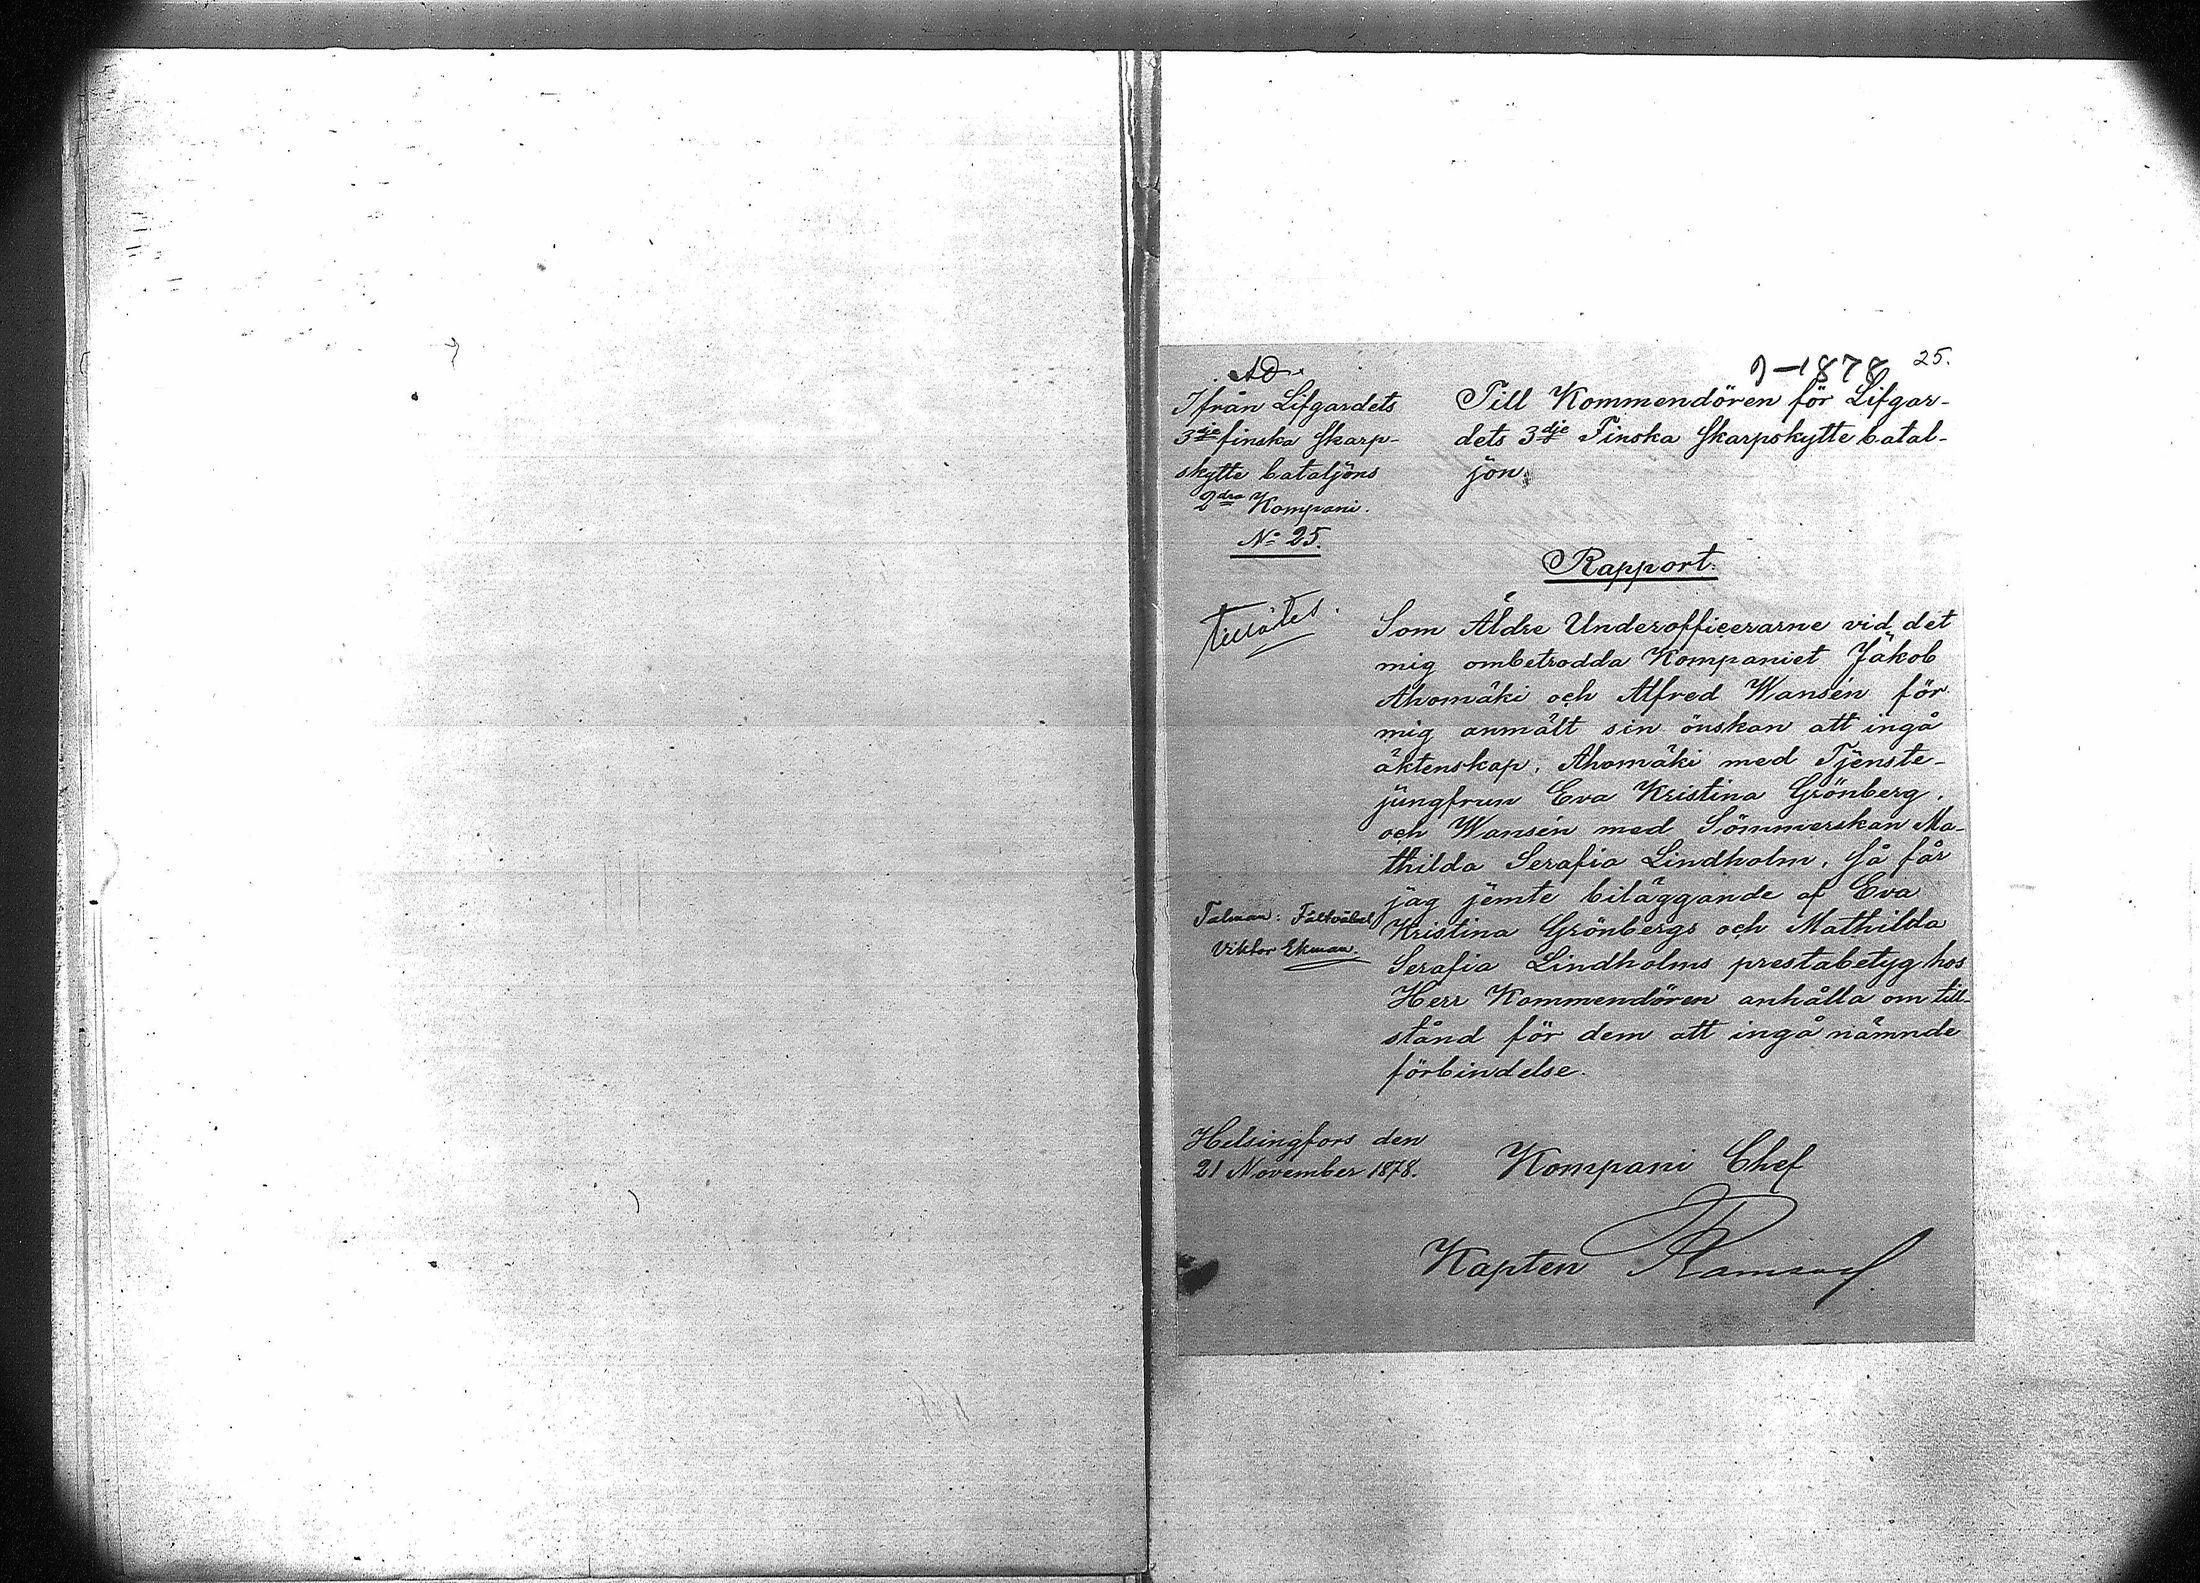 25.
–1878
AD.
Ifrån Lifgardets
3dje finska skarp-
skytte bataljöns
2dra Kompani.
No 25.
Till Kommendören för Lifgar-
dets 3dje Finska skarpskytte batal-
jön.
Rapport.
Tillåtes.
Som Äldre Underofficerarne vid det
mig ombetrodda Kompaniet Jakob
Ahomäki och Alfred Wansén för
mig anmält sin önskan att ingå
äktenskap, Ahomäki med Tjenste-
jungfrun Eva Kristina Grönberg,
och Wansén med Sömmerskan Ma-
thilda Serafia Lindholm, så får
jag jemte biläggande af Eva
Kristina Grönbergs och Mathilda
Serafia Lindholms prestabetyg hos
Herr Kommendören anhålla om till-
stånd för dem att ingå nämnde
förbindelse.
Talman: Fältväbel
Viktor Ekman.
Helsingfors den
21 November 1878.
Kompani Chef
Kapten Ramsay